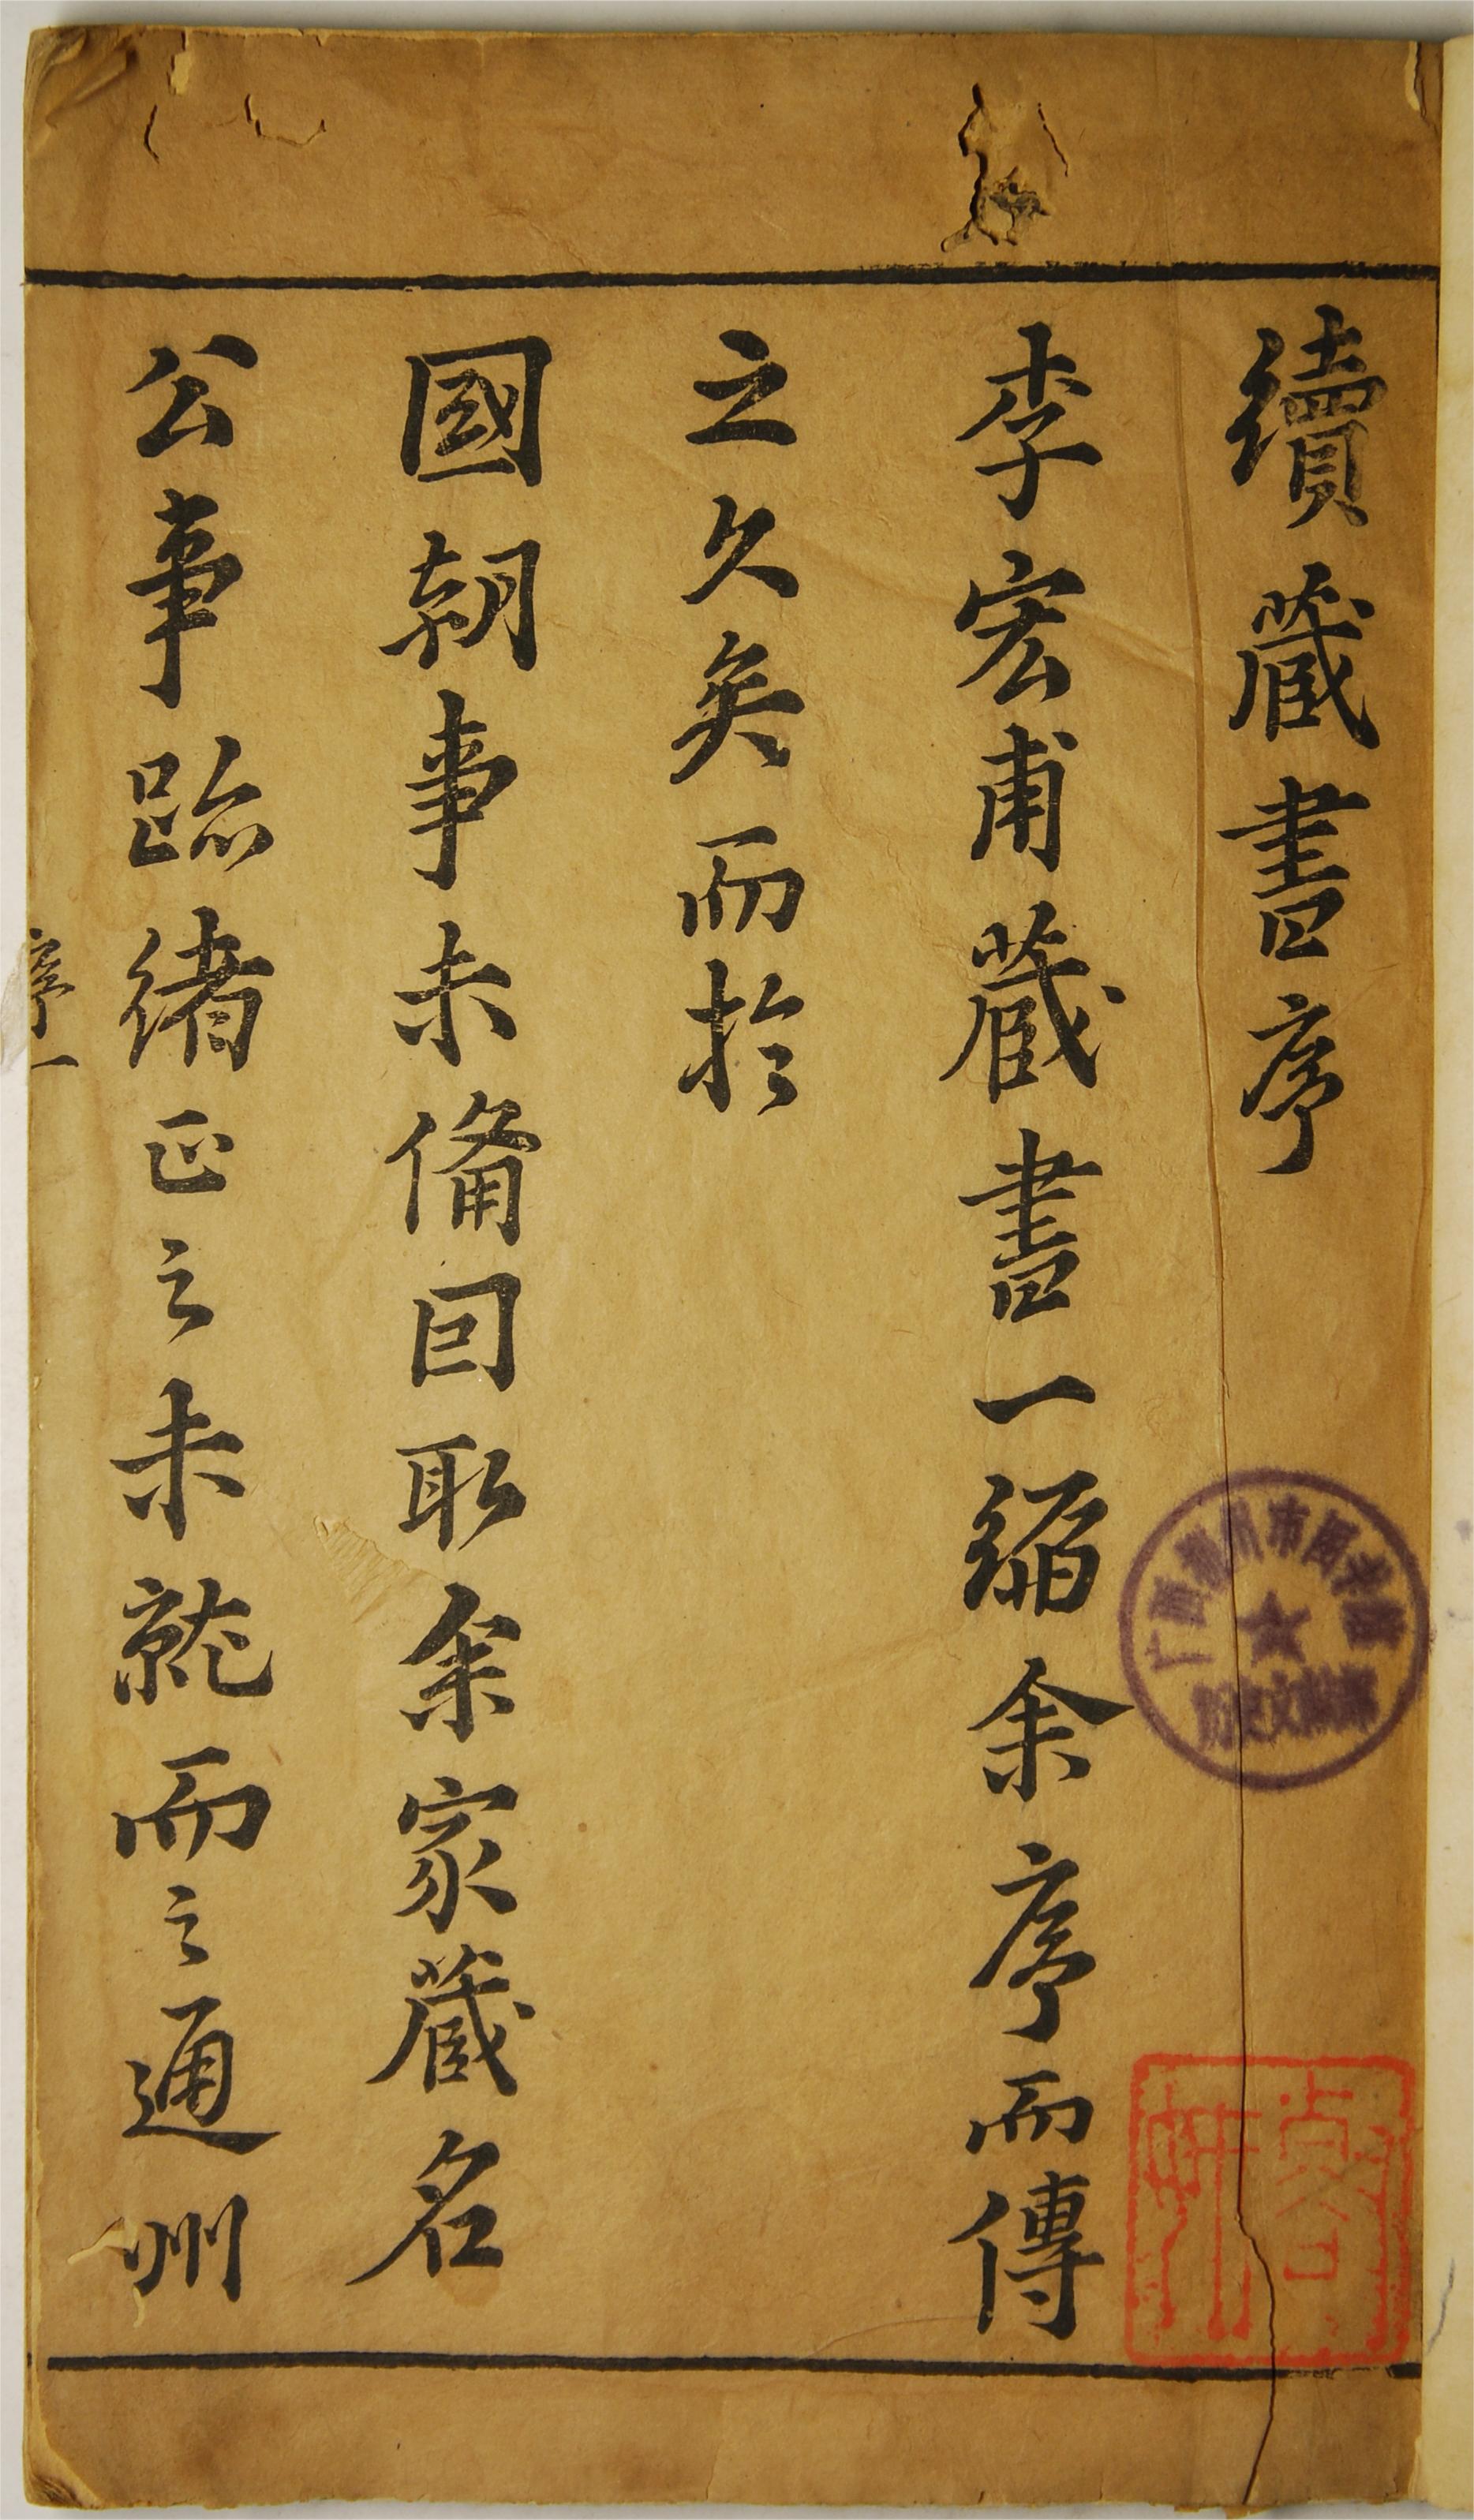 續藏書序
李宏甫藏書一編余序而傳
之久矣而於
國朝事未備因取余家藏名
公事跡緒正之未就而之通州
序一
广西柳州市图书馆
历史文献部